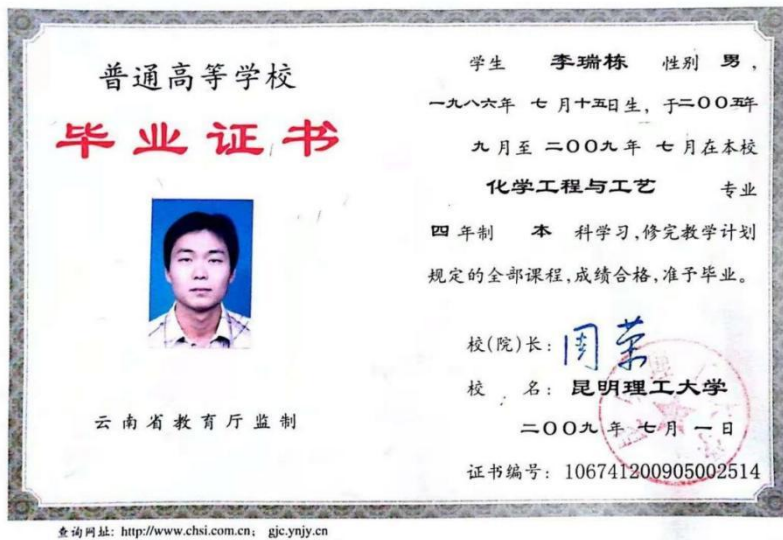 普通高等学校
毕业证书
云南省教育厅监制
学生 李瑞栋 性别 男，
一九八六年 七月十五日生，于二〇〇五年
九月至 二〇〇九年 七月在本校
化学工程与工艺 专业
四年制 本 科学习，修完教学计划
规定的全部课程，成绩合格，准予毕业。
校(院)长：周荣
校 名：昆明理工大学
二〇〇九年 七月 一日
证书编号：106741200905002514
查询网址：http://www.chsi.com.cn；gjc.ynjy.cn